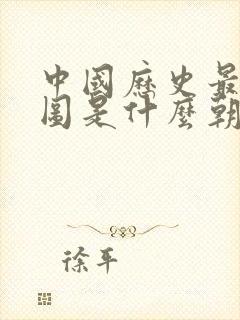 中國歷史最
圖是什麼朝
徐平